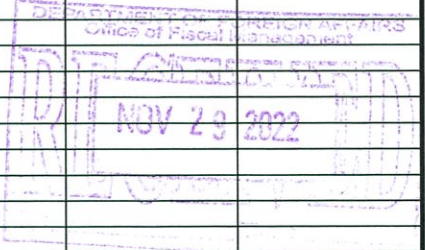 DEPARTMENT OF FOREIGN AFFAIRS
Office of Fiscal Management
RECEIVED
NOV 29 2022